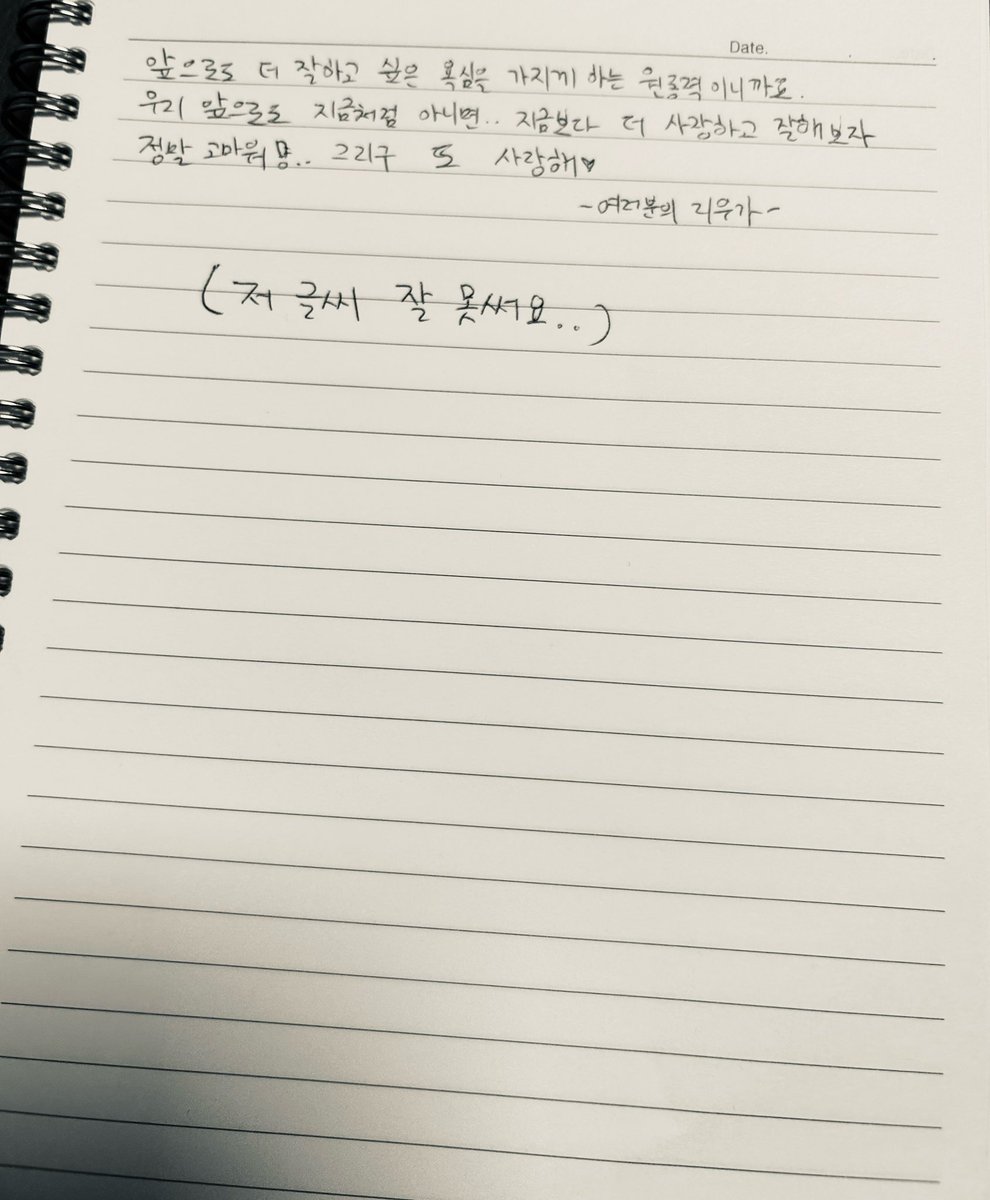 Date.
앞으로도 더 잘하고 싶은 욕심을 가지게 하는 원동력이니까요.
우리 앞으로도 지금처럼 아니면.. 지금보다 더 사랑하고 잘해보자
정말 고마워용.. 그리구 또 사랑해♥
-여러분의 리우가-
(저 글씨 잘 못써요..)